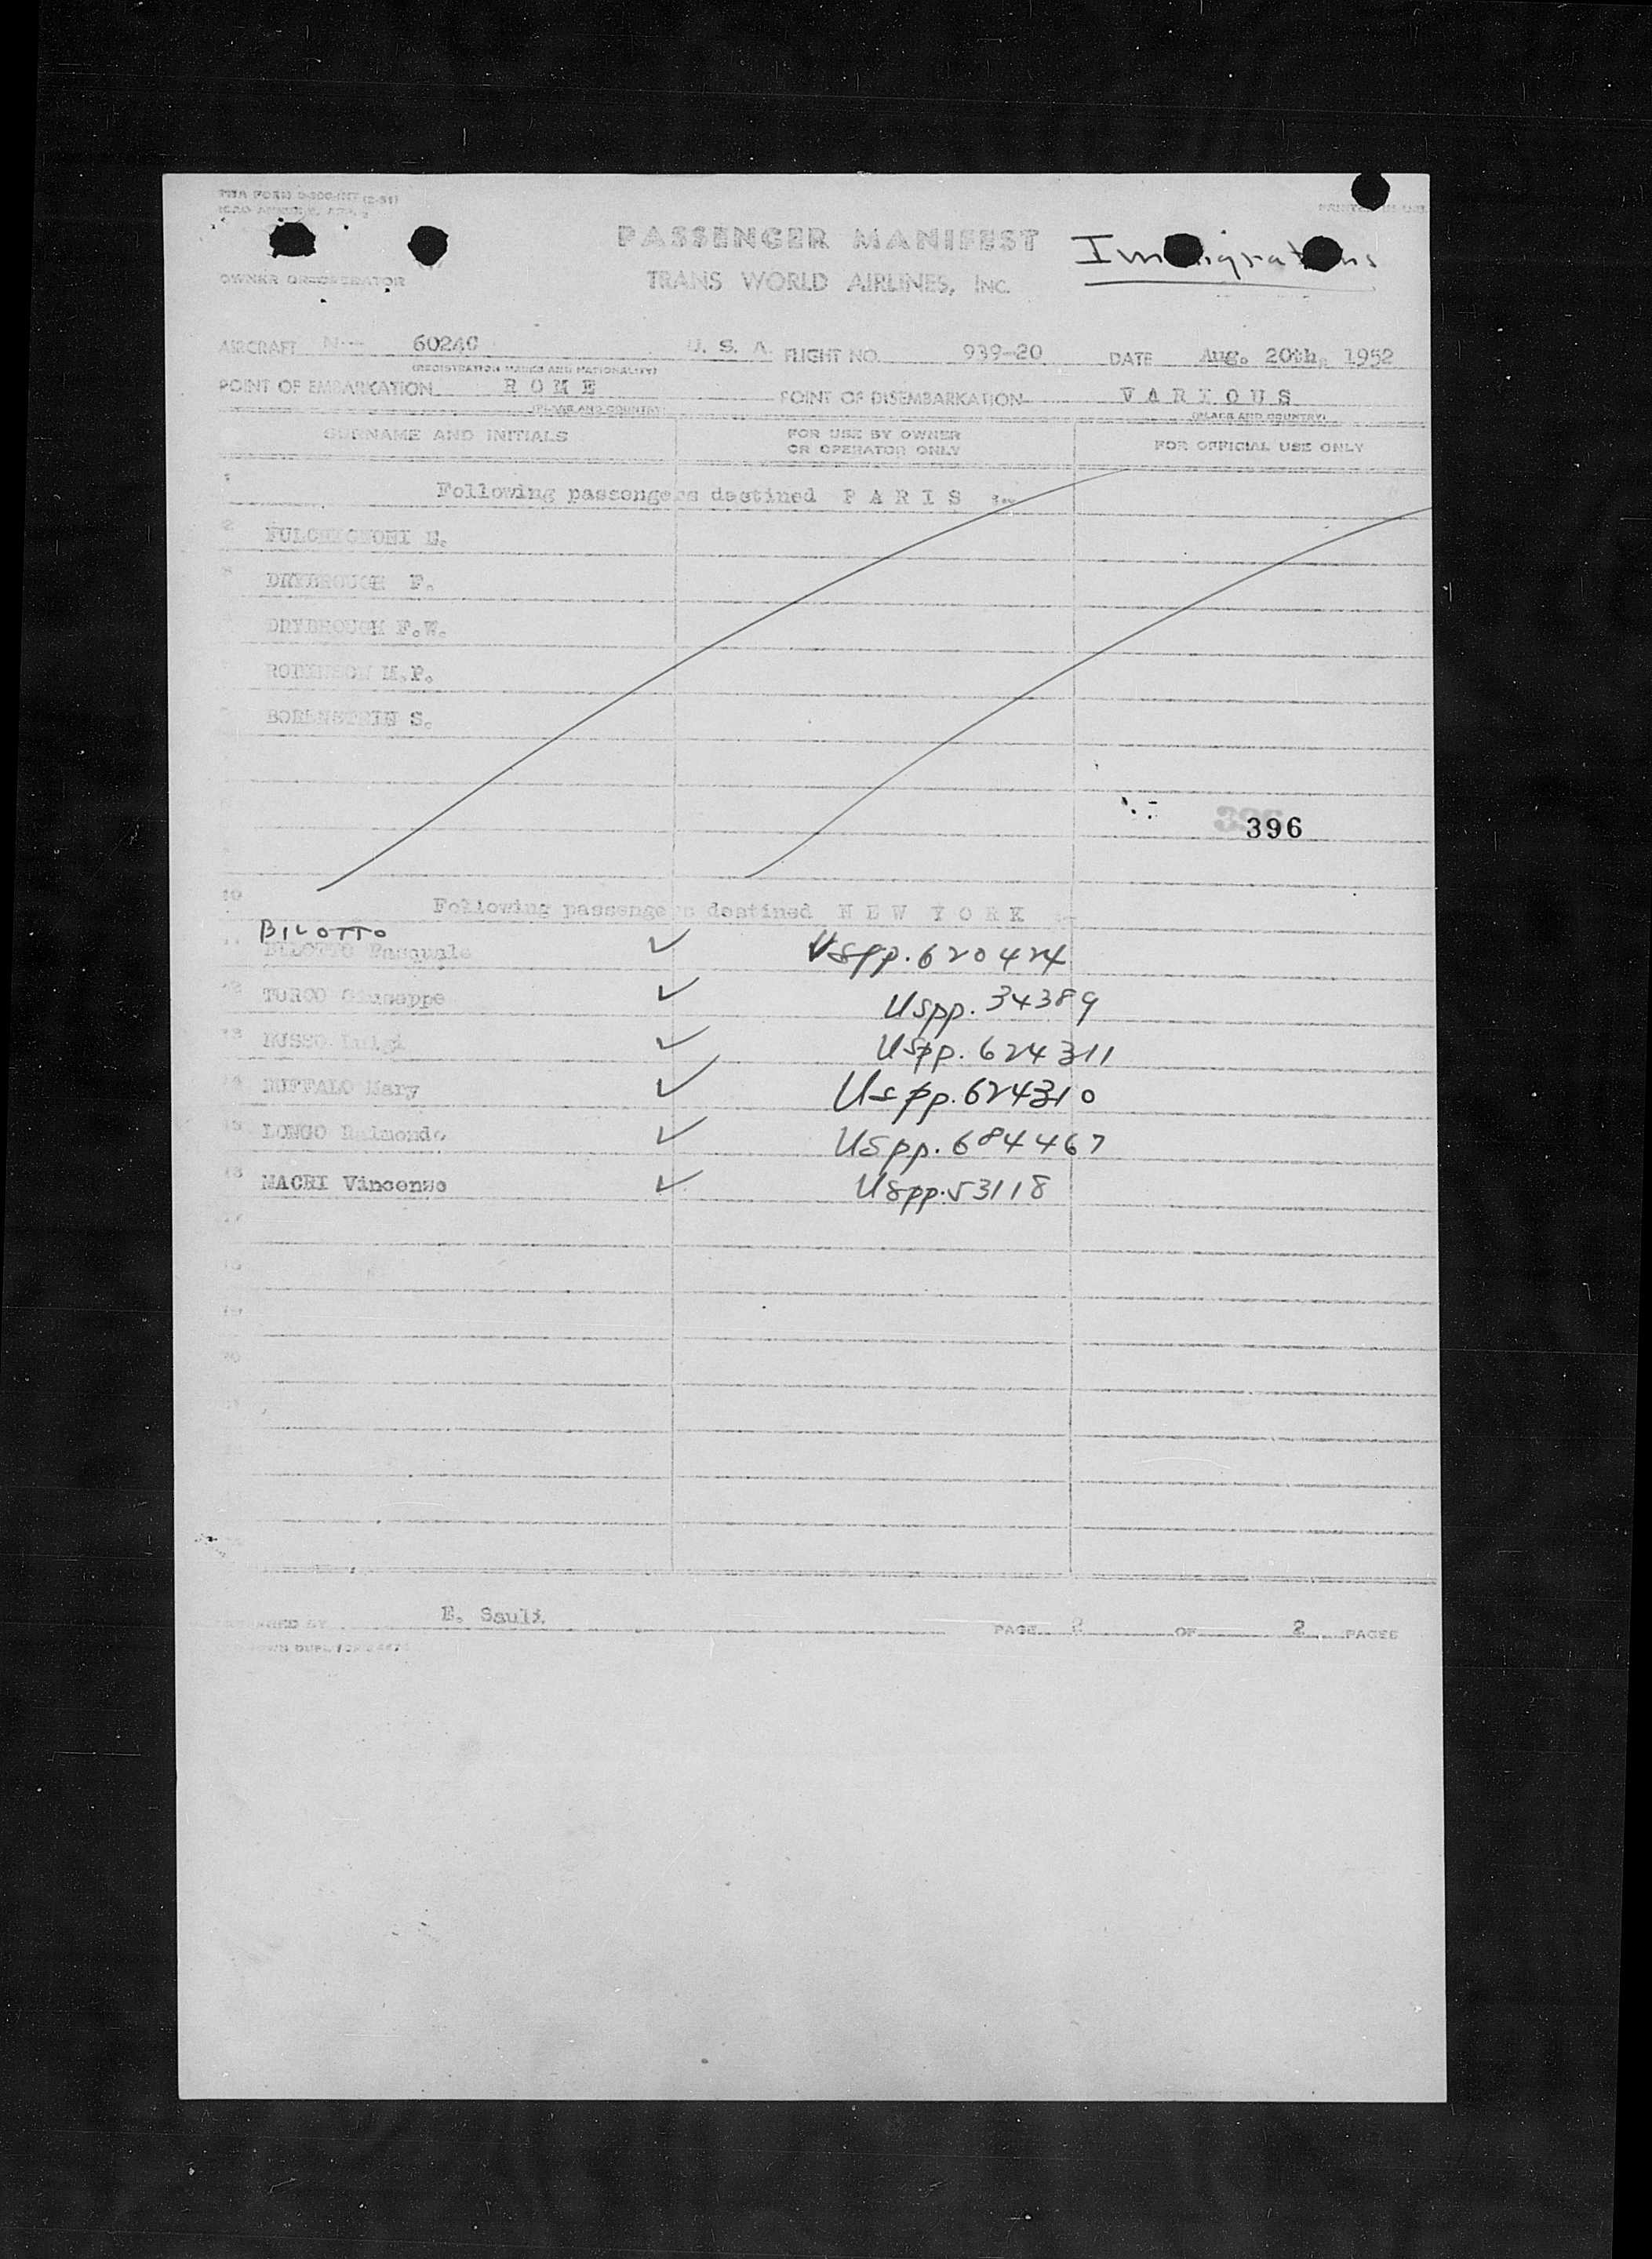 PRINTED IN U.S.A.
PASSENGER MANIFEST
Immigrations
OWNER OR OPERATOR
TRANS WORLD AIRLINES, INC.
AIRCRAFT N 6024C U. S. A. FLIGHT NO. 939-20 DATE Aug. 20th, 1952
(REGISTRATION MARKS AND NATIONALITY)
POINT OF EMBARKATION R O M E POINT OF DISEMBARKATION V A R I O U S
(PLACE AND COUNTRY) (PLACE AND COUNTRY)
SURNAME AND INITIALS FOR USE BY OWNER OR OPERATOR ONLY FOR OFFICIAL USE ONLY
Following passengers destined P A R I S
2 FULCHIGNONI E.
DRYBROUGH F.
DRYBROUGH F.W.
ROBINSON M.P.
BORENSTEIN S.
396
10 Following passengers destined N E W Y O R K
BILOTTO
11 BILOTTO Pasquale ✓ USpp. 620424
12 TURCO Giuseppe ✓ USpp. 34389
13 RUSSO Luigi ✓ USpp. 624311
14 BUFFALO Mary ✓ USpp. 624310
15 LONGO Raimondo ✓ USpp. 684467
16 MACRI Vincenzo ✓ USpp. 53118
17
18
19
20
E. Sauli
PAGE 2 OF 2 PAGES